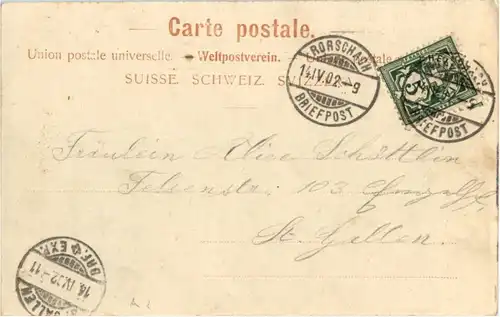 Carte postale.
Union postale universelle. Weltpostverein. Un postale
SUISSE. SCHWEIZ. SVIZZERA
RORSCHACH
14.IV.02.-9
BRIEFPOST
5
BRIEFPOST
Fräulein Alice Schüttlin
Felsenstr. 103
St. Gallen.
ST. GALLEN
14.IV.02.-11
BRF. EXP.